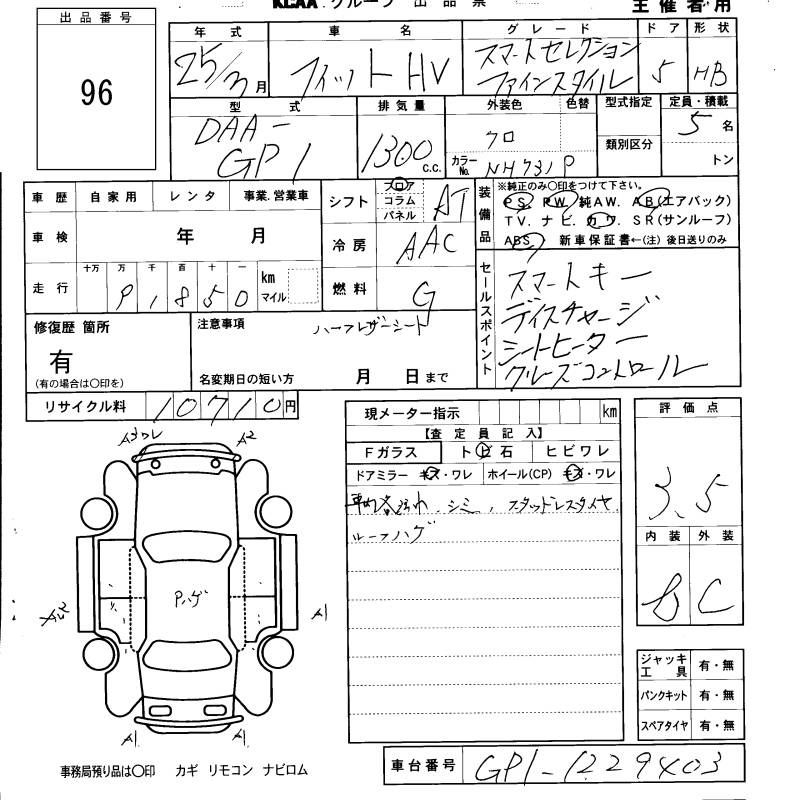 KCAA グループ 出品票
主催者用
出品番号
96
年式 車名 グレード ドア 形状
25/3月 フィットHV スマートセレクション ファインスタイル 5 HB
型式 排気量 外装色 色替 型式指定 定員・積載
DAA-GP1 1300 c.c. クロ カラーNo. NH731P 類別区分 5名 トン
車歴 自家用 レンタ 事業.営業車
車検 年 月
走行 十万 万 千 百 十 一 km マイル
9 1 8 5 0
シフト フロア コラム パネル AT
冷房 AAC
燃料 G
装備品
※純正のみ○印をつけて下さい。
PS. PW. 純AW. AB(エアバック)
TV. ナビ. カワ. SR(サンルーフ)
ABS. 新車保証書←(注) 後日送りのみ
セールスポイント
スマートキー
ディスチャージ
シートヒーター
クルーズコントロール
修復歴 箇所
有
(有の場合は○印を)
注意事項 ハーフレザーシート
名変期日の短い方 月 日まで
リサイクル料 10710円
現メーター指示 km
【査定員記入】
Fガラス ト ビ 石 ヒビワレ
ドアミラー キズ・ワレ ホイール(CP) キズ・ワレ
シミ, スタッドレスタイヤ.
ルーフハゲ
評価点
3.5
内装 外装
B C
ジャッキ工具 有・無
パンクキット 有・無
スペアタイヤ 有・無
A3ワレ A2
Pハゲ
A1
A1 A1
事務局預り品は○印 カギ リモコン ナビロム
車台番号 GP1-1229403